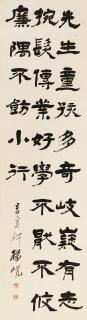 先生童孩多奇岐嶷有志
捥髮傳業好學不猒不攸
廉隅不飭小行
楊峴